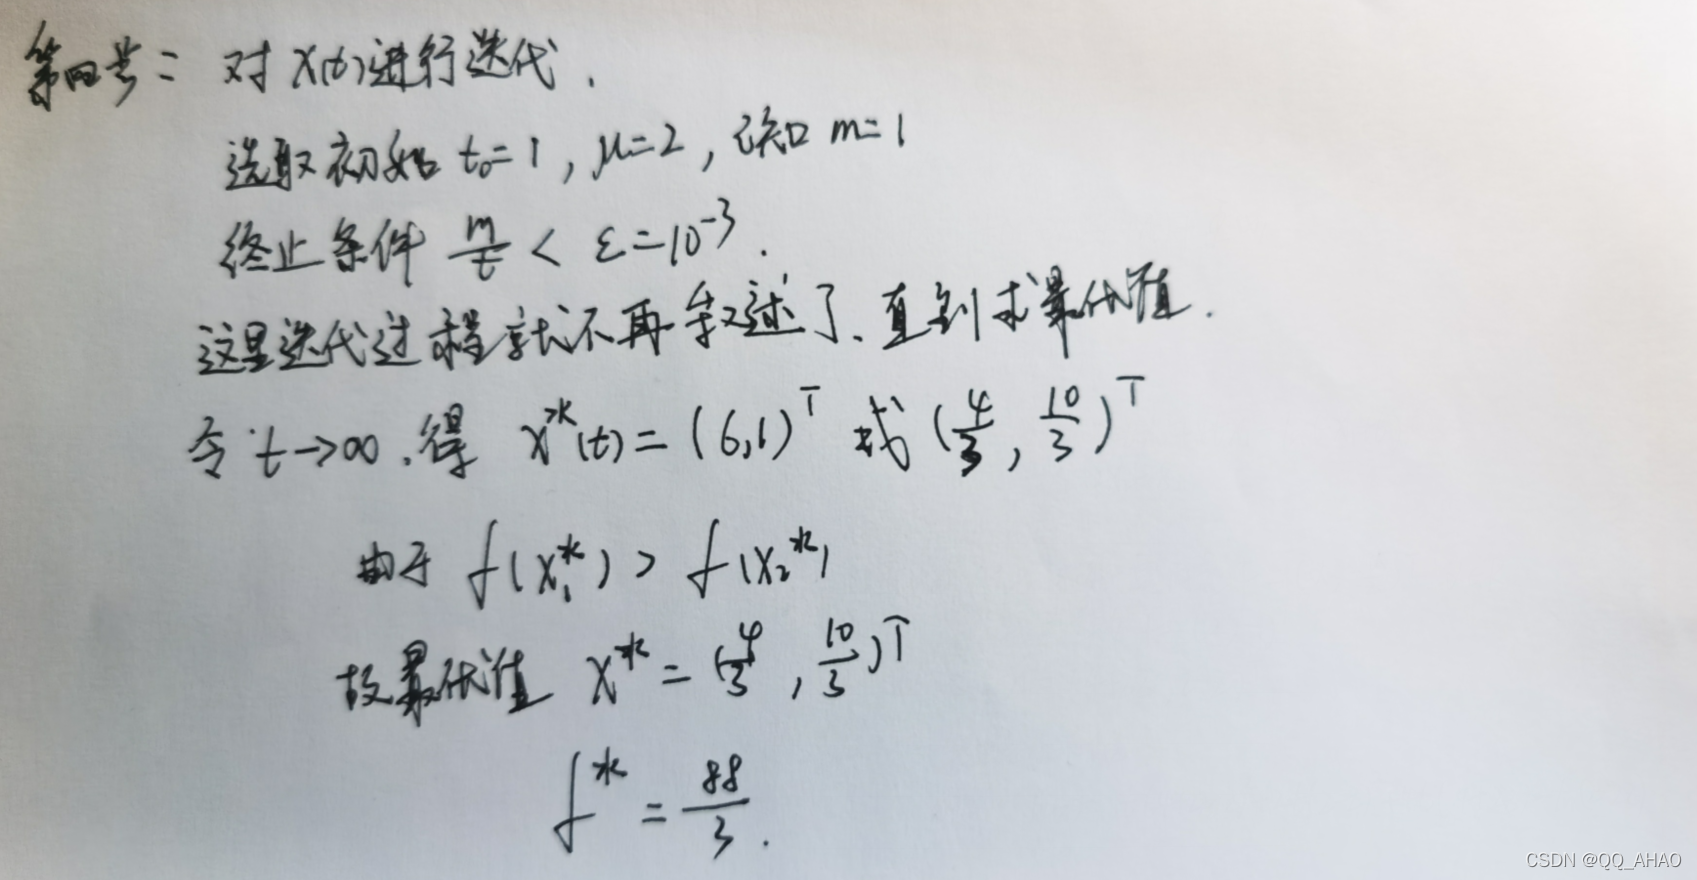 第四步: 对 X(t)进行迭代.
选取初始 t₀=1, μ=2, 已知 m=1
终止条件 m/t < ε=10⁻³.
这里迭代过程就不再叙述了、直到求最优值.
令 t→∞.得 x*(t)=(6,1)ᵀ 或 (4/3, 10/3)ᵀ
由于 f(x₁*) > f(x₂*)
故最优值 x* = (4/3, 10/3)ᵀ
f* = 88/3.
CSDN @QQ_AHAO